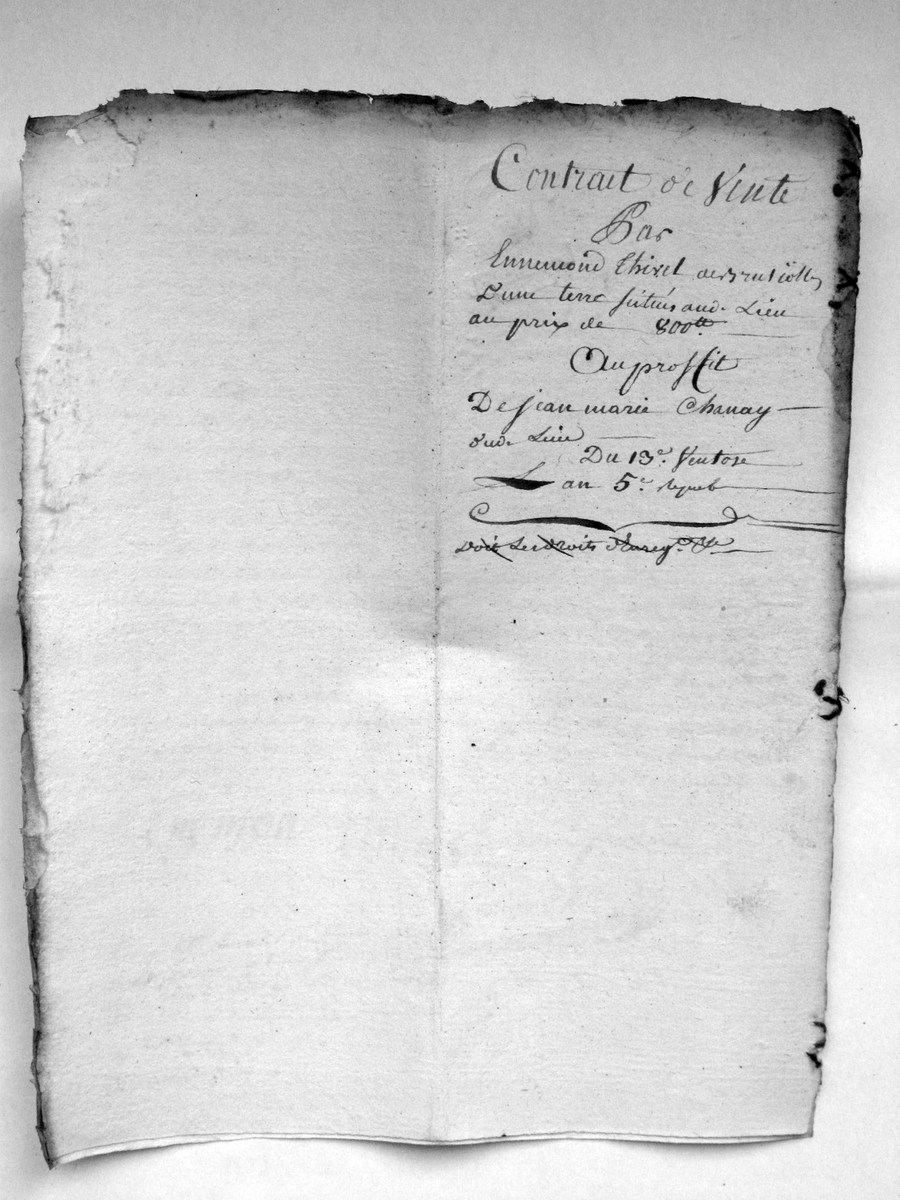 Contrait de Vente
Par
Ennemond Thivel
D'une terre situés aud. Lieu
au prix de 800tt
Au proffit
De jean marie Chanay
dud. Lieu
Du 13e. Ventose
L'an 5e. repub
Doit Les droits d'Enreg.t &a